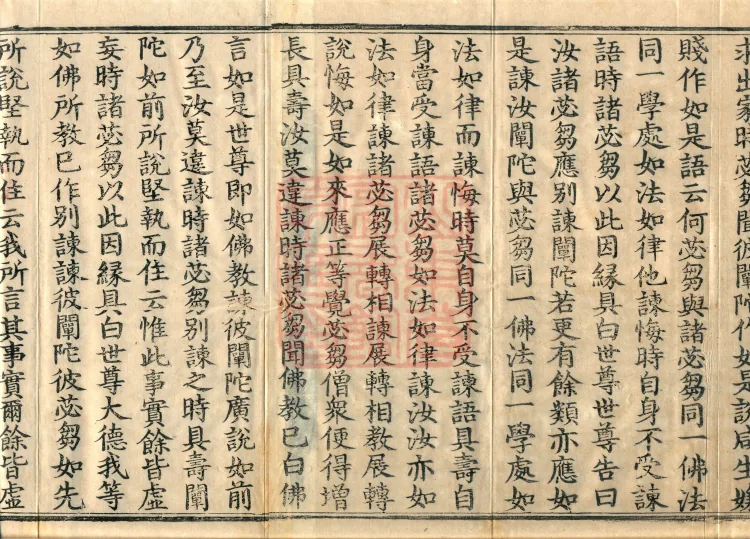 求出家時苾芻聞彼闡陀作如是說咸生嫌
賤作如是語云何苾芻與諸苾芻同一佛法
同一學處如法如律他諫悔時自身不受諫
語時諸苾芻以此因緣具白世尊世尊告曰
汝諸苾芻應別諫闡陀若更有餘類亦應如
是諫汝闡陀與苾芻同一佛法同一學處如
法如律而諫悔時莫自身不受諫語具壽自
身當受諫語諸苾芻如法如律諫汝汝亦如
法如律諫諸苾芻展轉相諫展轉相教展轉
說悔如是如來應正等覺苾芻僧衆便得增
長具壽汝莫違諫時諸苾芻聞佛教已白佛
言如是世尊即如佛教諫彼闡陀廣說如前
乃至汝莫違諫時諸苾芻別諫之時具壽闡
陀如前所說堅執而住云惟此事實餘皆虛
妄時諸苾芻以此因緣具白世尊大德我等
如佛所教已作別諫諫彼闡陀彼苾芻如先
所說堅執而住云我所言其事實爾餘皆虛